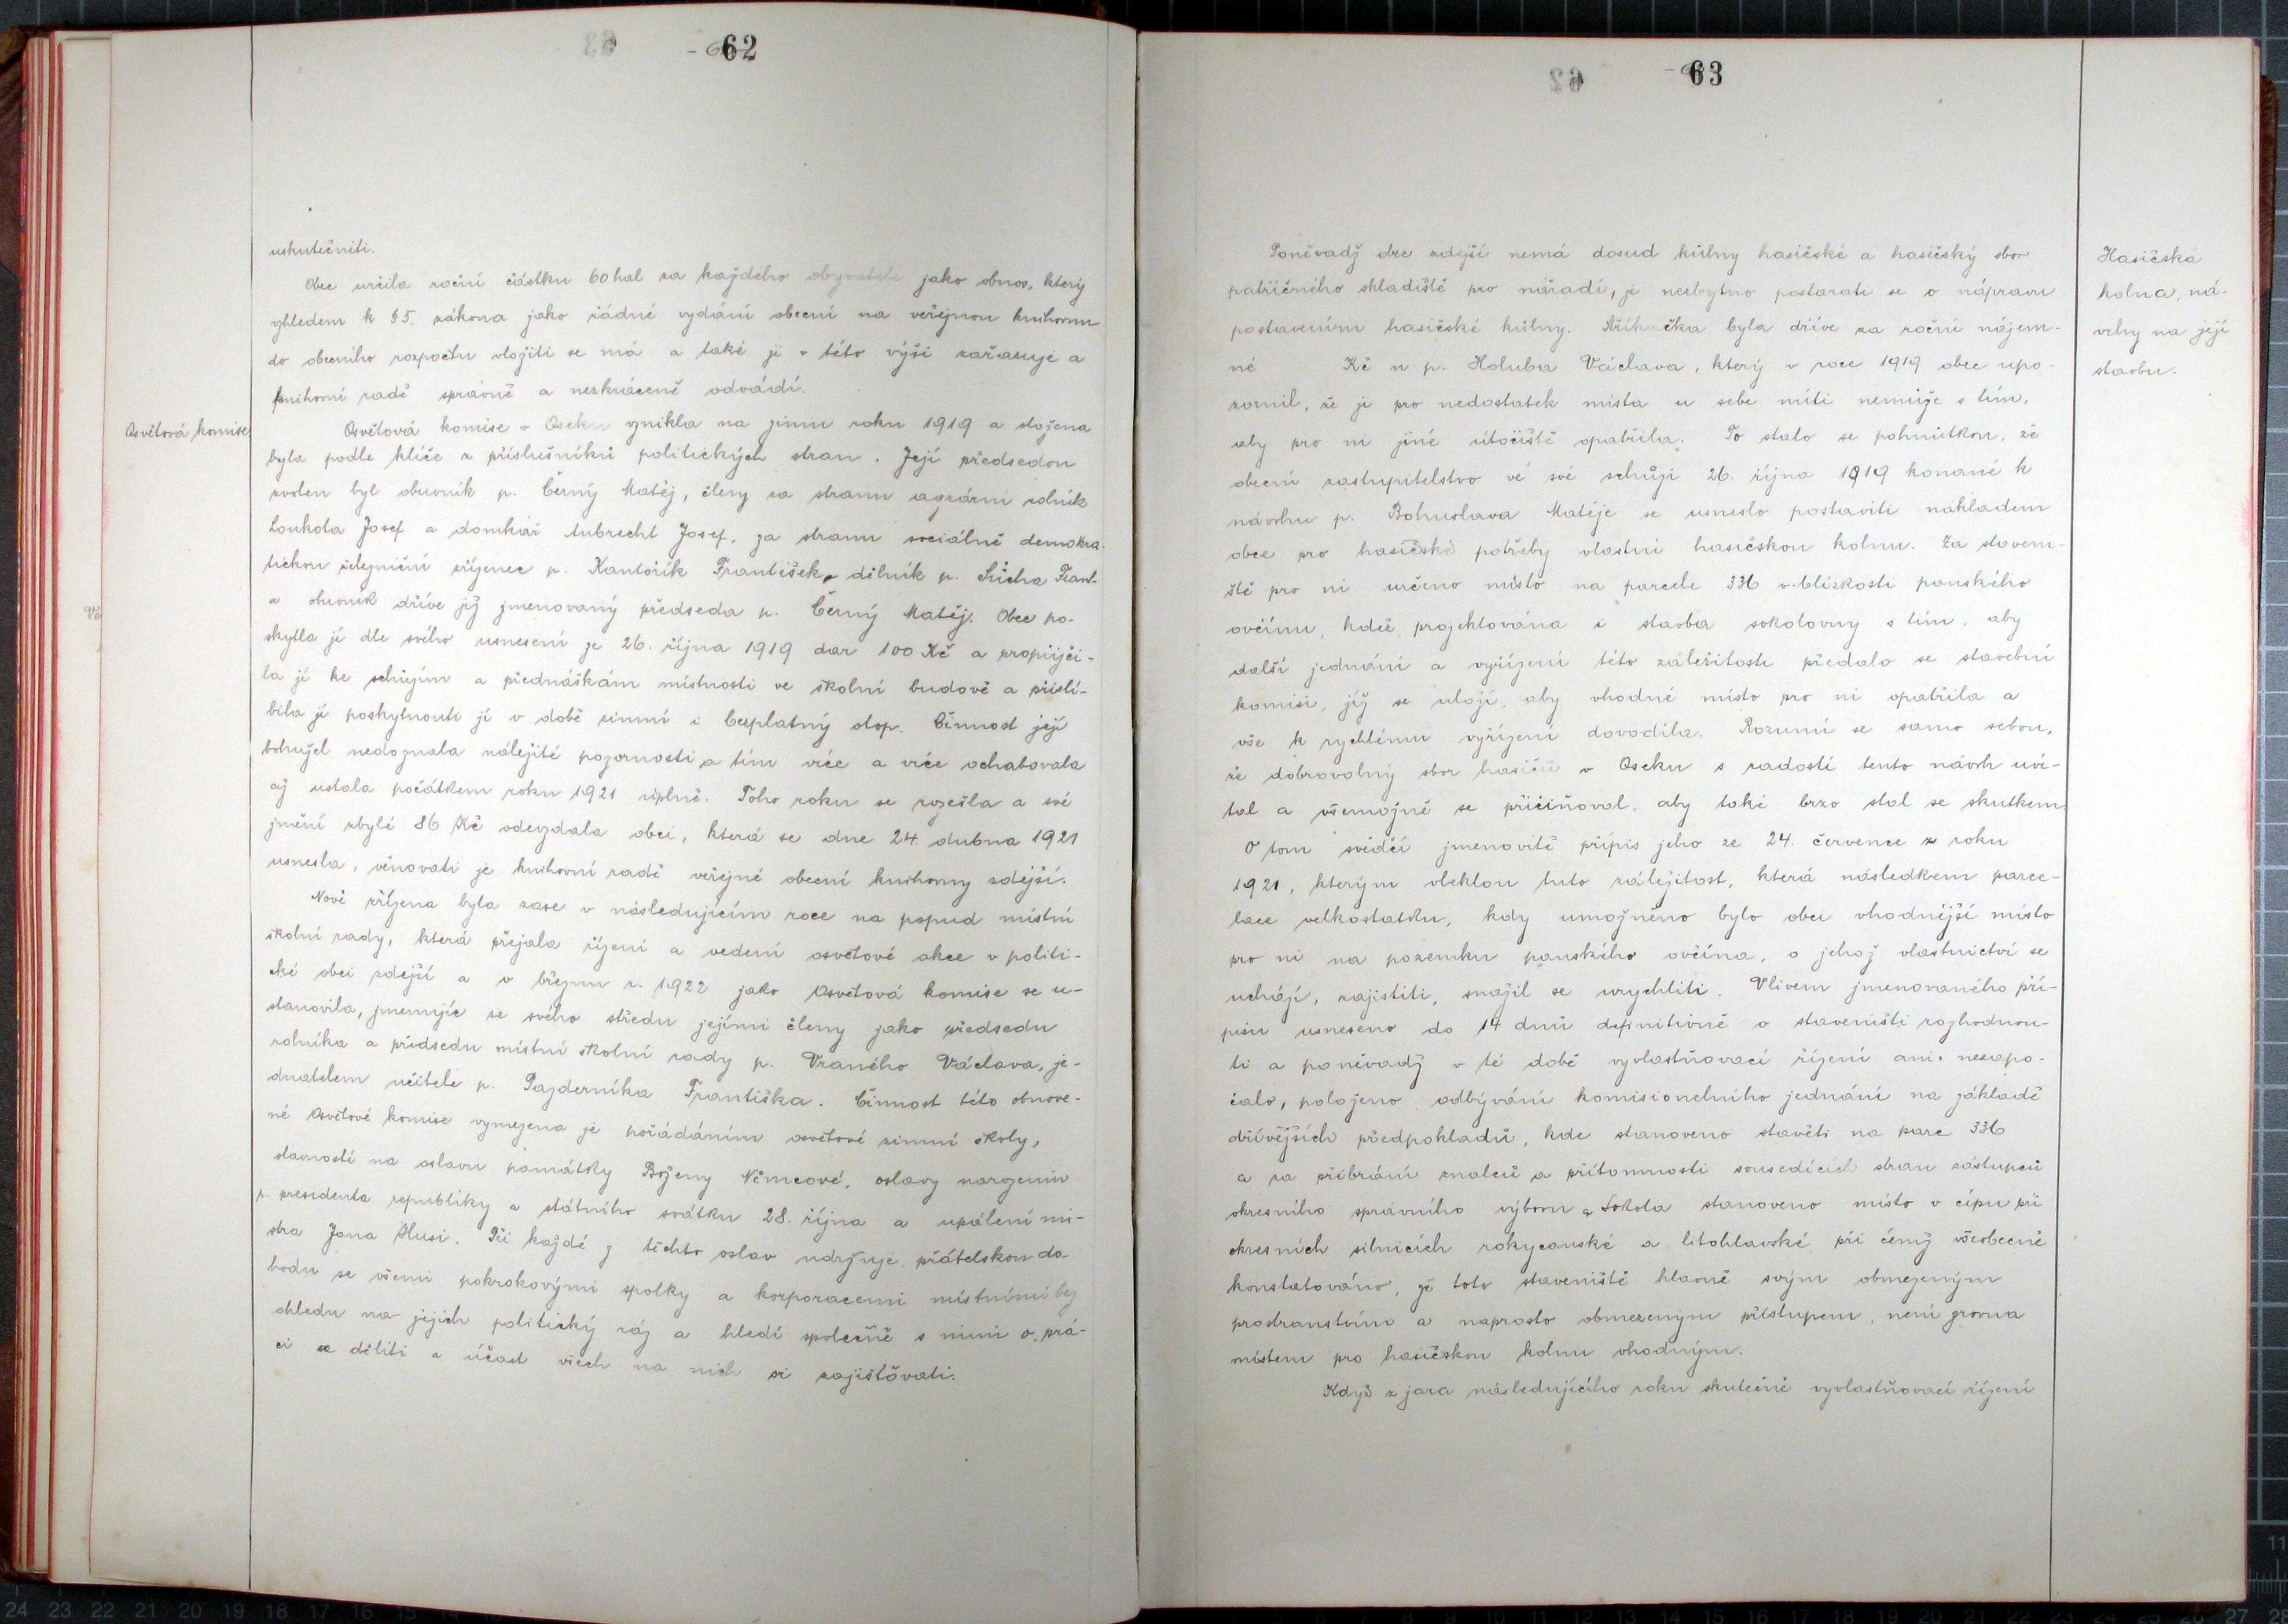 62
uskutečniti.
Obec určila roční částku 60 hal za každého obyvatele jako obnos, který
vzhledem k § 5. zákona jako řádné vydání obecní na veřejnou knihovnu
do obecního rozpočtu vložiti se má a také ji v této výši zařazuje a
knihovní radě správně a nezkráceně odvádí.
Osvětová komise
Osvětová komise v Oseku vznikla na zimu roku 1919 a složena
byla podle klíče z příslušníků politických stran. Její předsedou
zvolen byl obuvník p. Černý Matěj, členy za stranu agrární rolník
Loukota Josef a domkář Aubrecht Josef, za stranu sociálně demokra-
tickou železniční zřízenec p. Kantořík František, dělník p. Sůcha Frant.
a obuvník dříve již jmenovaný předseda p. Černý Matěj. Obec po-
skytla jí dle svého usnesení ze 26. října 1919 dar 100 Kč a propůjči-
la jí ke schůzím a přednáškám místnosti ve školní budově a příslí-
bila jí poskytnouti jí v době zimní i bezplatný otop. Činnost její
bohužel nedoznala náležité pozornosti a tím více a více ochabovala
až ustala počátkem roku 1921 úplně. Toho roku se rozešla a své
jmění zbylé 86 Kč odevzdala obci, která se dne 24. dubna 1921
usnesla, věnovati je knihovní radě veřejné obecní knihovny zdejší.
Nově zřízena byla zase v následujícím roce na popud místní
školní rady, která přejala řízení a vedení osvětové akce v politi-
cké obci zdejší a v březnu r. 1922 jako osvětová komise se u-
stanovila, jmenujíc ze svého středu jejími členy jako předsedu
rolníka a předsedu místní školní rady p. Vraného Václava, je-
dnatelem učitele p. Pazderníka Františka. Činnost této obnove-
né osvětové komise vymezena je pořádáním osvětové zimní školy,
slavností na oslavu památky Boženy Němcové, oslavy narozenin
p. presidenta republiky a státního svátku 28. října a upálení mi-
stra Jana Husi. Při každé z těchto oslav udržuje přátelskou do-
hodu se všemi pokrokovými spolky a korporacemi místními bez
ohledu na jejich politický ráz a hledí společně s nimi o prá-
ci se děliti a účast všech na nich si zajišťovati.
63
Poněvadž obec zdejší nemá dosud kůlny hasičské a hasičský sbor
patřičného skladiště pro nářadí, je nezbytno postarati se o nápravu
postavením hasičské kůlny. Stříkačka byla dříve za roční nájem-
né Kč u p. Holuba Václava, který v roce 1919 obec upo-
zornil, že ji pro nedostatek místa u sebe míti nemůže s tím,
aby pro ni jiné útočiště opatřila. To stalo se pohnůtkou, že
obecní zastupitelstvo ve své schůzi 26. října 1919 konané k
návrhu p. Bohuslava Matěje se usneslo postaviti nákladem
obce pro hasičské potřeby vlastní hasičskou kolnu. Za staveni-
ště pro ni určeno místo na parcele 336 v blízkosti panského
ovčínu, kdež projektována i stavba sokolovny s tím, aby
další jednání a vyřízení této záležitosti předalo se stavební
komisi, jíž se uloží, aby vhodné místo pro ni opatřila a
vše k rychlému vyřízení dovodila. Rozumí se samo sebou,
že dobrovolný sbor hasičů v Oseku s radostí tento návrh uví-
tal a všemožně se přičiňoval, aby také brzo stal se skutkem.
O tom svědčí jmenovitě přípis jeho ze 24. července z roku
1921, kterým vleklou tuto záležitost, která následkem parce-
lace velkostatku, kdy umožněno bylo obci vhodnější místo
pro ni na pozemku panského ovčína, o jehož vlastnictví se
uchází, zajistiti, snažil se urychliti. Vlivem jmenovaného pří-
pisu usneseno do 14 dnů definitivně o staveništi rozhodnou-
ti a poněvadž v té době vyvlastňovací řízení ani nezapo-
čalo, položeno odbývání komisionelního jednání na základě
dřívějších předpokladů, kde stanoveno stavěti na parc 336
a za přibrání znalců a přítomnosti sousedících stran zástupců
okresního správního výboru a Sokola stanoveno místo v cípu při
okresních silnicích rokycanské a litohlavské při čemž všeobecně
konstatováno, že toto staveniště hlavně svým obmezeným
prostranstvím a naprosto obmezeným přístupem, není zrovna
místem pro hasičskou kolnu vhodným.
Když z jara následujícího roku skutečně vyvlastňovací řízení
Hasičská
kolna, ná-
vrhy na její
stavbu.